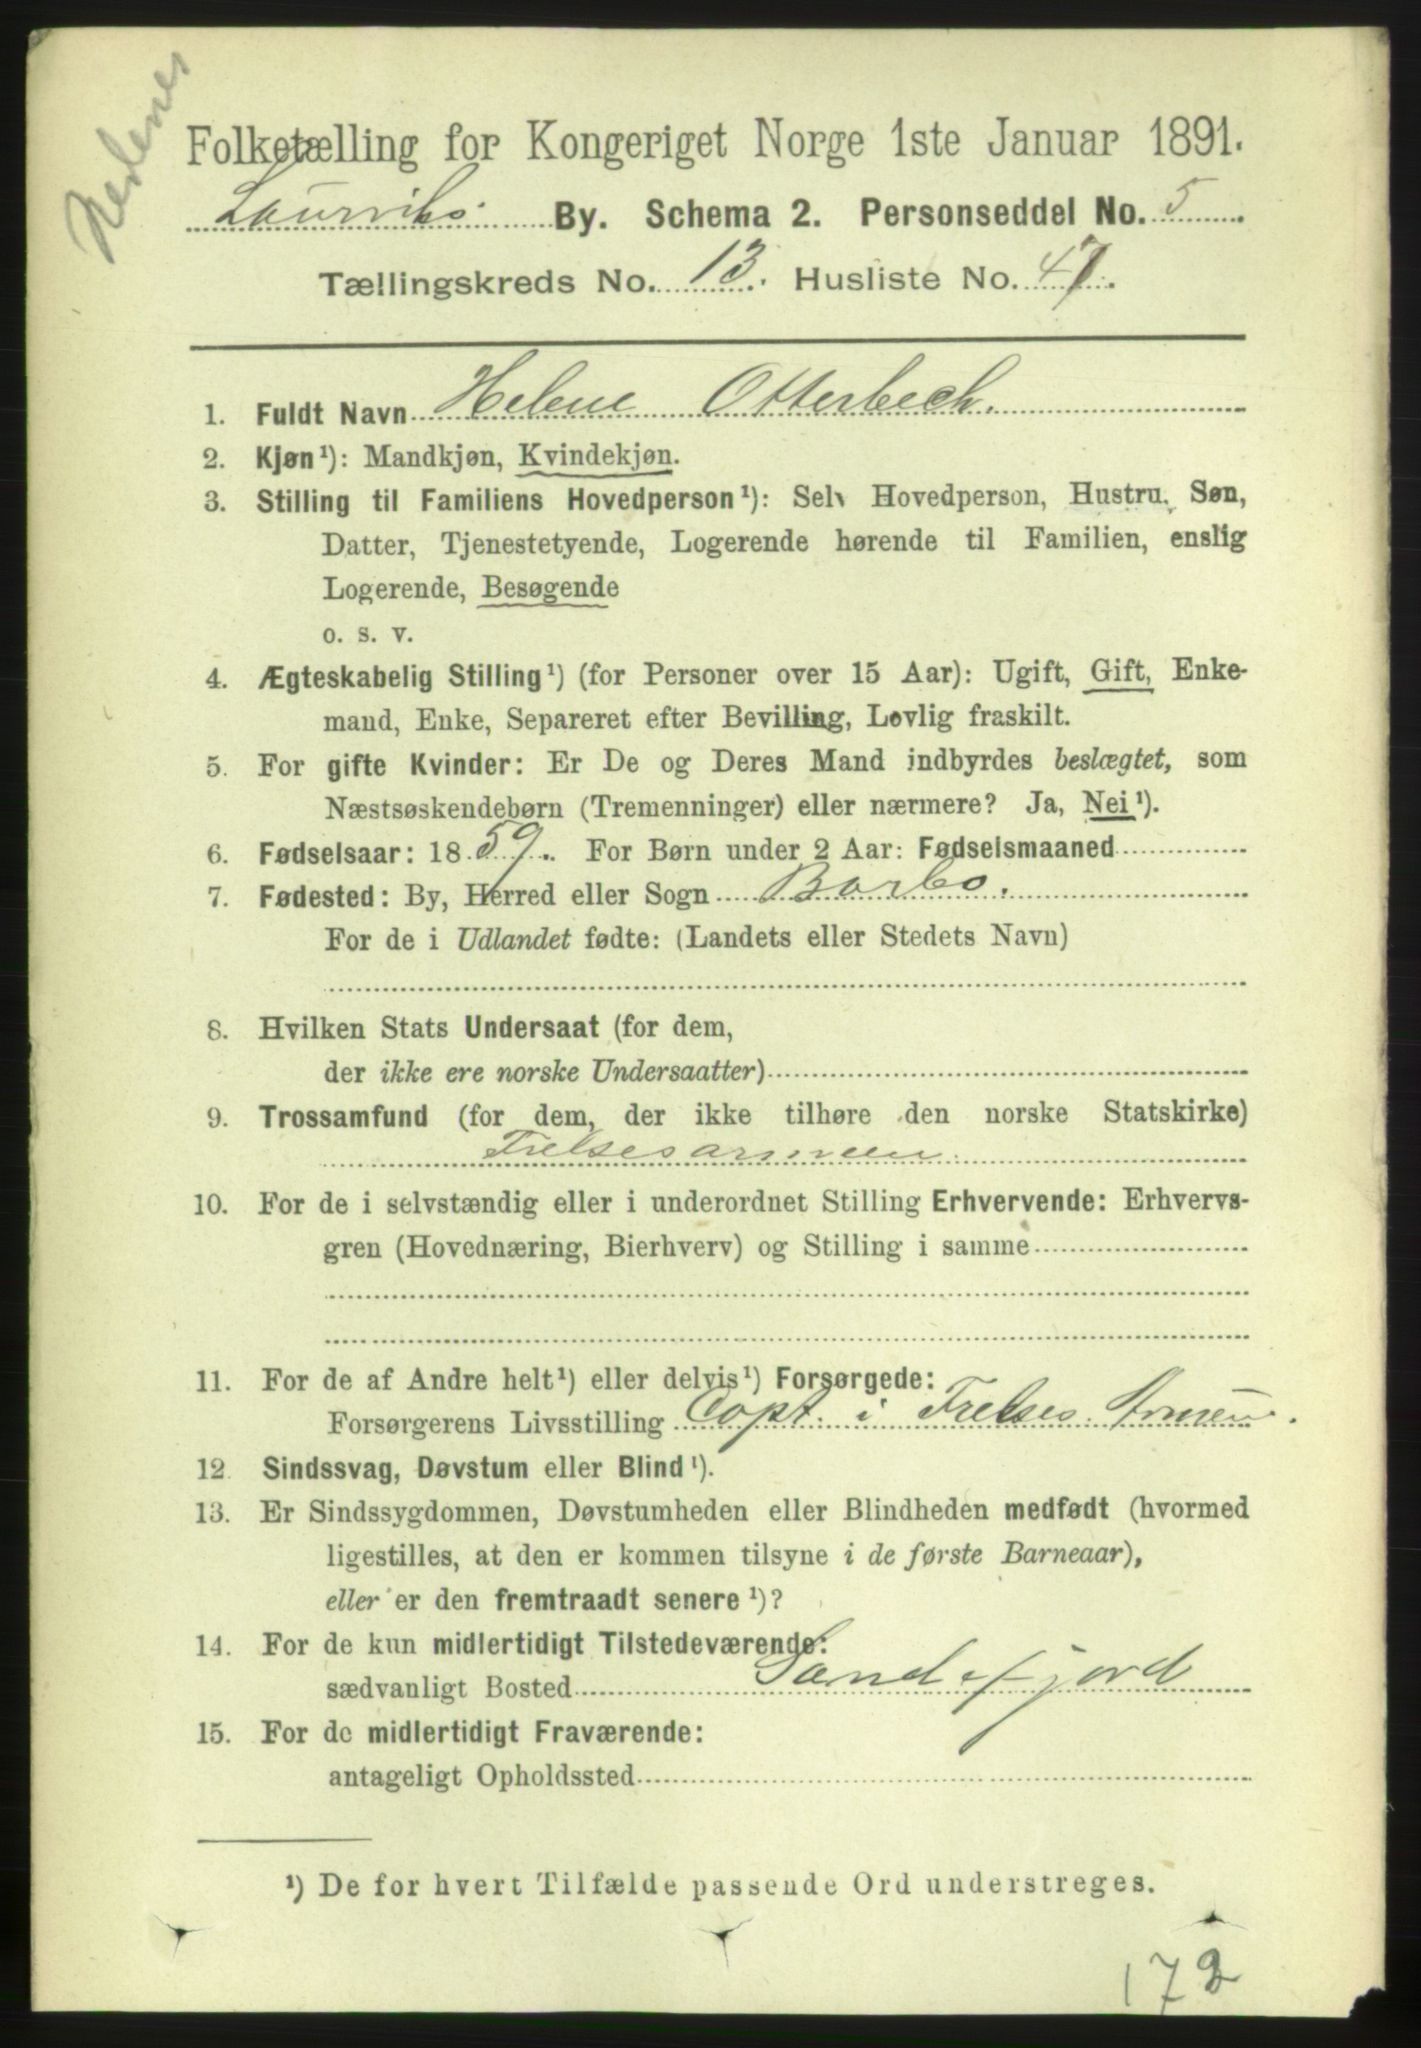 Nedenes
Folketælling for Kongeriget Norge 1ste Januar 1891.
Laurviks By. Schema 2. Personseddel No. 5
Tællingskreds No. 13. Husliste No. 47.
1. Fuldt Navn Helene Otterbech.
2. Kjøn¹): Mandkjøn, Kvindekjøn.
3. Stilling til Familiens Hovedperson¹): Selv Hovedperson, Hustru, Søn,
Datter, Tjenestetyende, Logerende hørende til Familien, enslig
Logerende, Besøgende
o. s. v.
4. Ægteskabelig Stilling¹) (for Personer over 15 Aar): Ugift, Gift, Enke-
mand, Enke, Separeret efter Bevilling, Lovlig fraskilt.
5. For gifte Kvinder: Er De og Deres Mand indbyrdes beslægtet, som
Næstsøskendebørn (Tremenninger) eller nærmere? Ja, Nei¹).
6. Fødselsaar: 1859. For Børn under 2 Aar: Fødselsmaaned
7. Fødested: By, Herred eller Sogn Barbo.
For de i Udlandet fødte: (Landets eller Stedets Navn)
8. Hvilken Stats Undersaat (for dem,
der ikke ere norske Undersaatter)
9. Trossamfund (for dem, der ikke tilhøre den norske Statskirke)
Frelsesarmeen
10. For de i selvstændig eller i underordnet Stilling Erhvervende: Erhvervs-
gren (Hovednæring, Bierhverv) og Stilling i samme
11. For de af Andre helt¹) eller delvis¹) Forsørgede:
Forsørgerens Livsstilling Capt. i Frelses Armeen.
12. Sindssvag, Døvstum eller Blind¹).
13. Er Sindssygdommen, Døvstumheden eller Blindheden medfødt (hvormed
ligestilles, at den er kommen tilsyne i de første Barneaar),
eller er den fremtraadt senere¹)?
14. For de kun midlertidigt Tilstedeværende:
sædvanligt Bosted Sandefjord
15. For de midlertidigt Fraværende:
antageligt Opholdssted
¹) De for hvert Tilfælde passende Ord understreges.
172